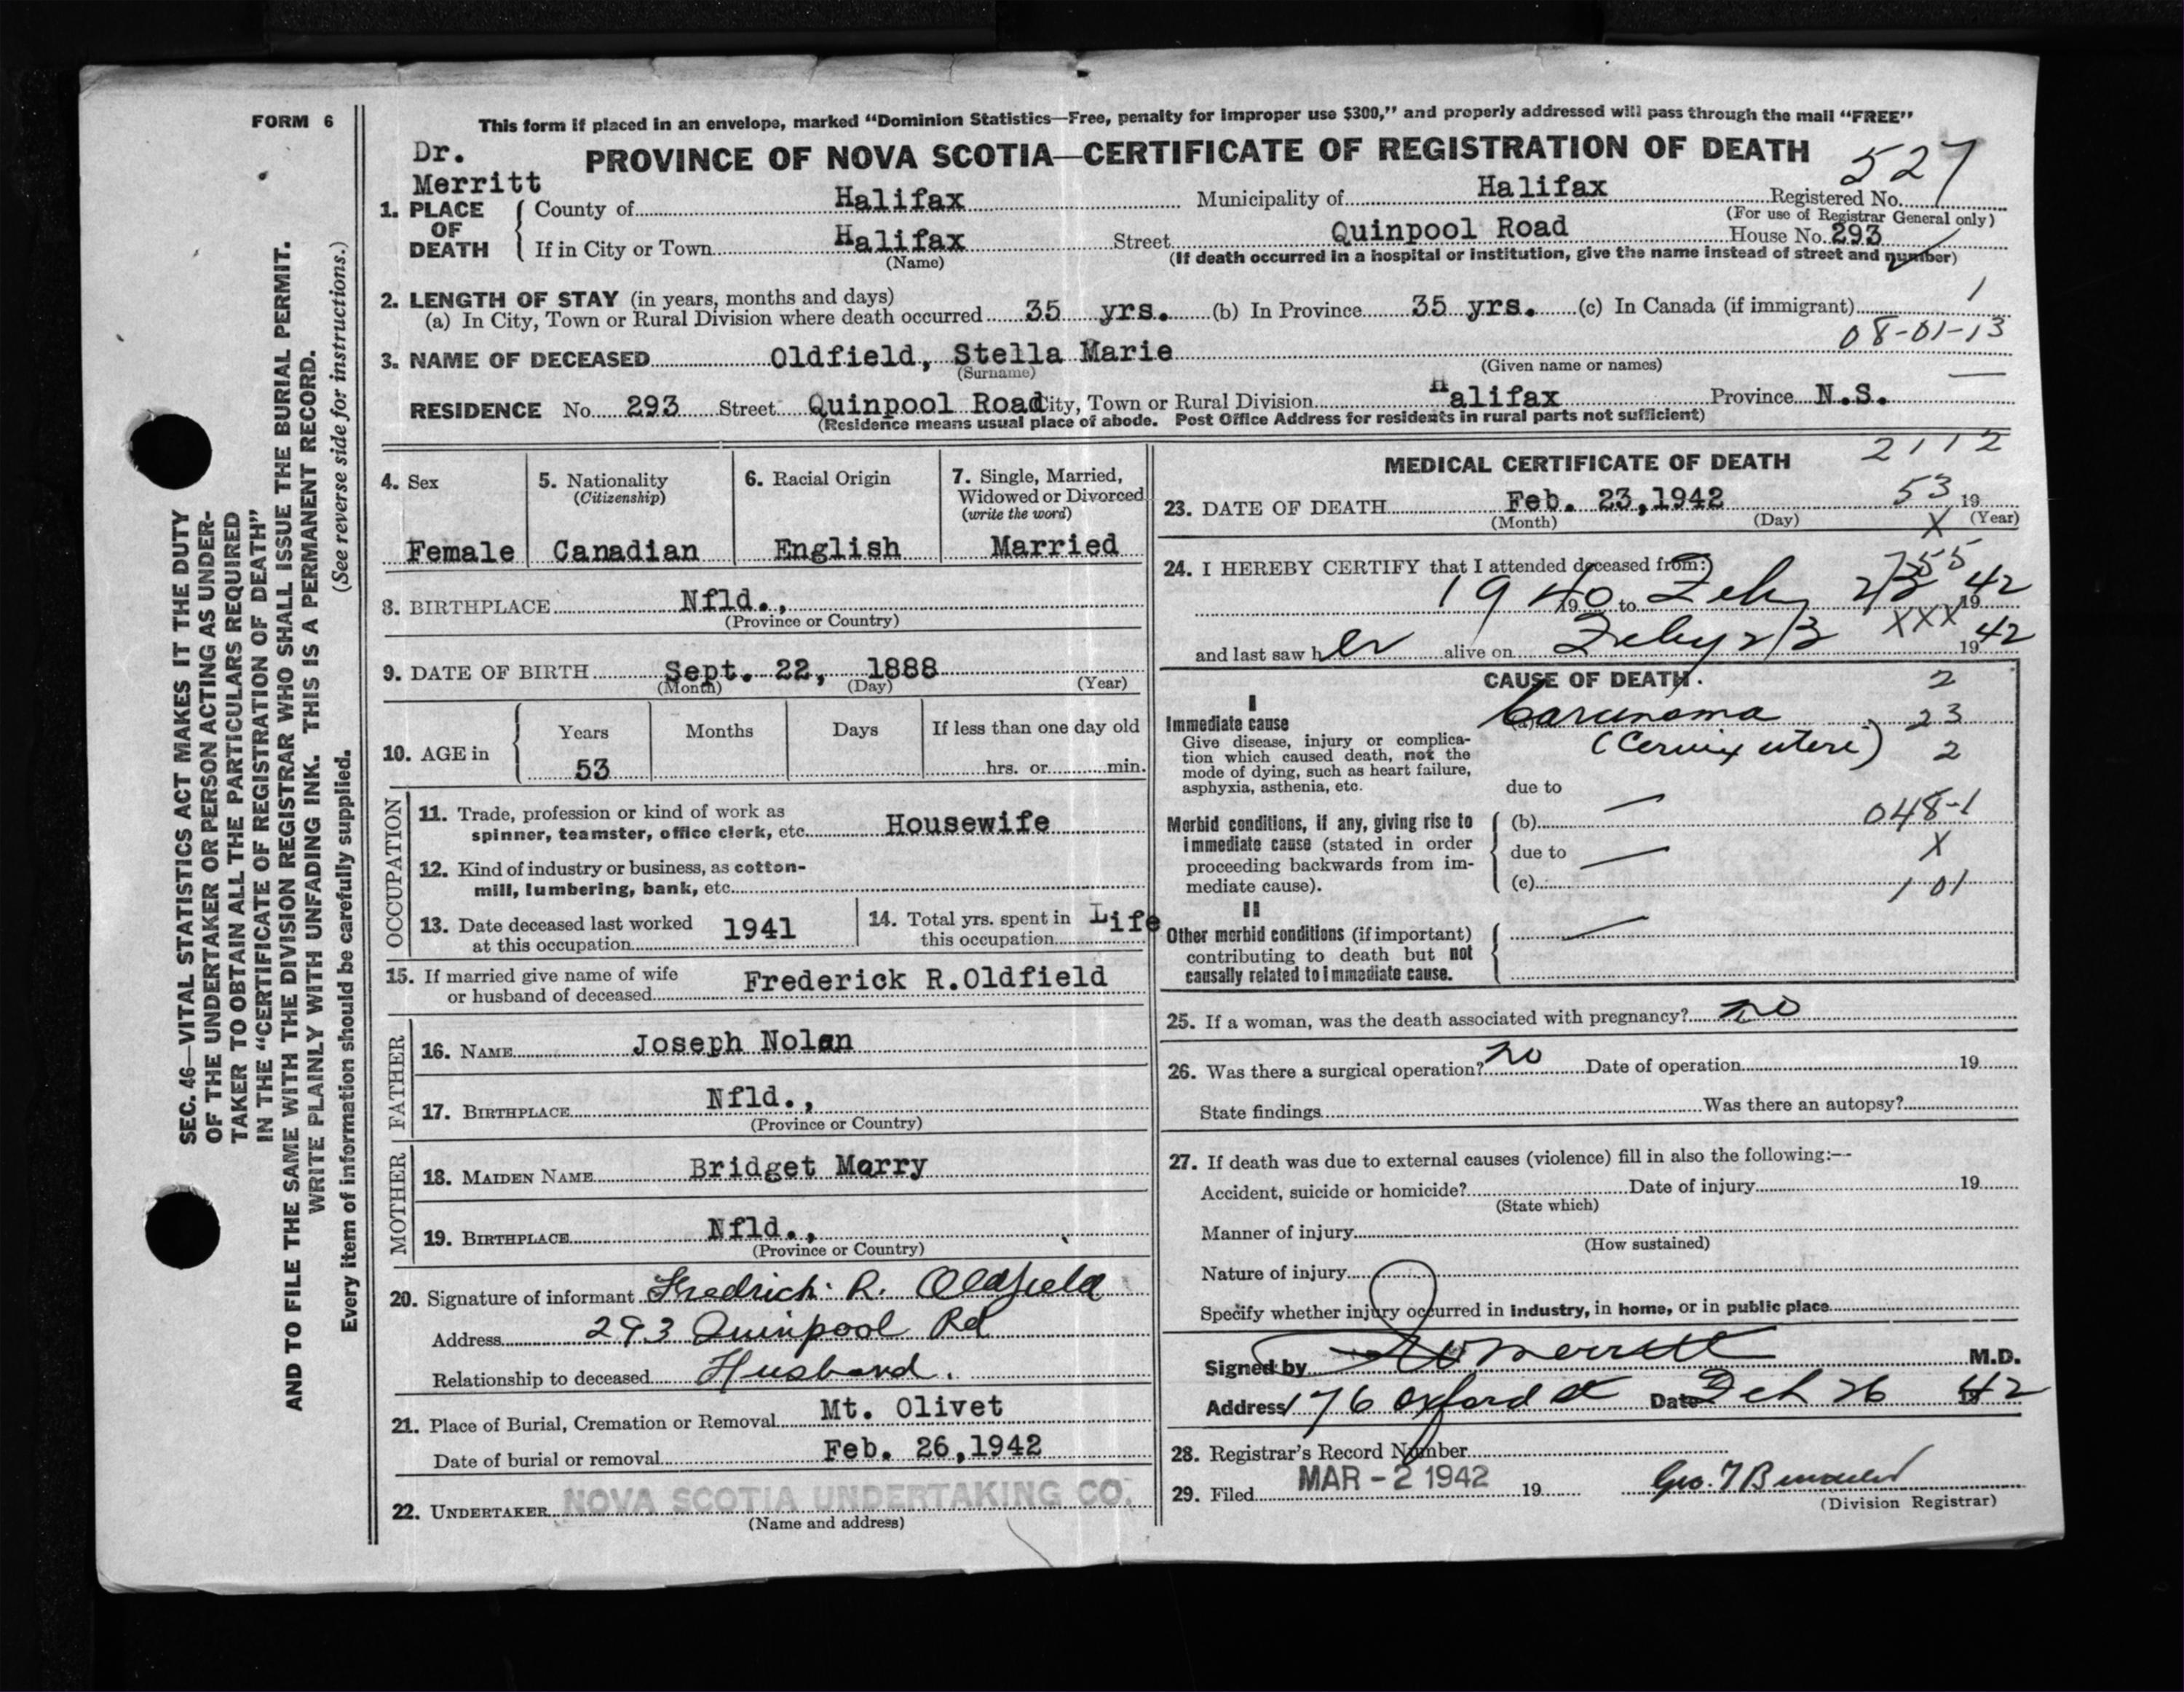 FORM 6
This form if placed in an envelope, marked “Dominion Statistics—Free, penalty for improper use $300,” and properly addressed will pass through the mail “FREE”
Dr.
Merritt
PROVINCE OF NOVA SCOTIA—CERTIFICATE OF REGISTRATION OF DEATH
527
1. PLACE OF DEATH
County of Halifax Municipality of Halifax Registered No.
(For use of Registrar General only)
If in City or Town Halifax Street Quinpool Road House No. 293
(Name) (If death occurred in a hospital or institution, give the name instead of street and number)
2. LENGTH OF STAY (in years, months and days)
(a) In City, Town or Rural Division where death occurred 35 yrs. (b) In Province 35 yrs. (c) In Canada (if immigrant) 1
08-01-13
3. NAME OF DECEASED Oldfield, Stella Marie
(Surname) (Given name or names)
RESIDENCE No. 293 Street Quinpool Road City, Town or Rural Division Halifax Province N.S.
(Residence means usual place of abode. Post Office Address for residents in rural parts not sufficient)
4. Sex
Female
5. Nationality
(Citizenship)
Canadian
6. Racial Origin
English
7. Single, Married,
Widowed or Divorced
(write the word)
Married
8. BIRTHPLACE Nfld.,
(Province or Country)
9. DATE OF BIRTH Sept. 22, 1888
(Month) (Day) (Year)
10. AGE in
Years Months Days If less than one day old
53 hrs. or min.
OCCUPATION
11. Trade, profession or kind of work as
spinner, teamster, office clerk, etc. Housewife
12. Kind of industry or business, as cotton-
mill, lumbering, bank, etc.
13. Date deceased last worked
at this occupation 1941
14. Total yrs. spent in
this occupation Life
15. If married give name of wife
or husband of deceased Frederick R.Oldfield
FATHER
16. NAME Joseph Nolan
17. BIRTHPLACE Nfld.,
(Province or Country)
MOTHER
18. MAIDEN NAME Bridget Morry
19. BIRTHPLACE Nfld.,
(Province or Country)
20. Signature of informant Fredrich R. Oldfield
Address 293 Quinpool Rd
Relationship to deceased Husband.
21. Place of Burial, Cremation or Removal Mt. Olivet
Date of burial or removal Feb. 26,1942
22. UNDERTAKER NOVA SCOTIA UNDERTAKING CO.
(Name and address)
MEDICAL CERTIFICATE OF DEATH
2112
23. DATE OF DEATH Feb. 23,1942 53 19
(Month) (Day) (Year)
X
24. I HEREBY CERTIFY that I attended deceased from:
755
1940 19 to Feby 23 19 42
XXX
and last saw her alive on Feby 23 19 42
CAUSE OF DEATH.
2
I
Immediate cause (a) Carcinoma 23
(Cervix uteri) 2
Give disease, injury or complica-
tion which caused death, not the
mode of dying, such as heart failure,
asphyxia, asthenia, etc.
due to —
Morbid conditions, if any, giving rise to
immediate cause (stated in order
proceeding backwards from im-
mediate cause).
(b) 048-1
due to — X
(c) 101
II
Other morbid conditions (if important)
contributing to death but not
causally related to immediate cause.
—
25. If a woman, was the death associated with pregnancy? no
26. Was there a surgical operation? no Date of operation 19
State findings Was there an autopsy?
27. If death was due to external causes (violence) fill in also the following:—
Accident, suicide or homicide? Date of injury 19
(State which)
Manner of injury
(How sustained)
Nature of injury
Specify whether injury occurred in industry, in home, or in public place
Signed by Merritt M.D.
Address 176 Oxford St Date Feb 26 42
28. Registrar's Record Number
29. Filed MAR - 2 1942 19
(Division Registrar)
SEC. 46—VITAL STATISTICS ACT MAKES IT THE DUTY
OF THE UNDERTAKER OR PERSON ACTING AS UNDER-
TAKER TO OBTAIN ALL THE PARTICULARS REQUIRED
IN THE “CERTIFICATE OF REGISTRATION OF DEATH”
AND TO FILE THE SAME WITH THE DIVISION REGISTRAR WHO SHALL ISSUE THE BURIAL PERMIT.
WRITE PLAINLY WITH UNFADING INK. THIS IS A PERMANENT RECORD.
Every item of information should be carefully supplied. (See reverse side for instructions.)